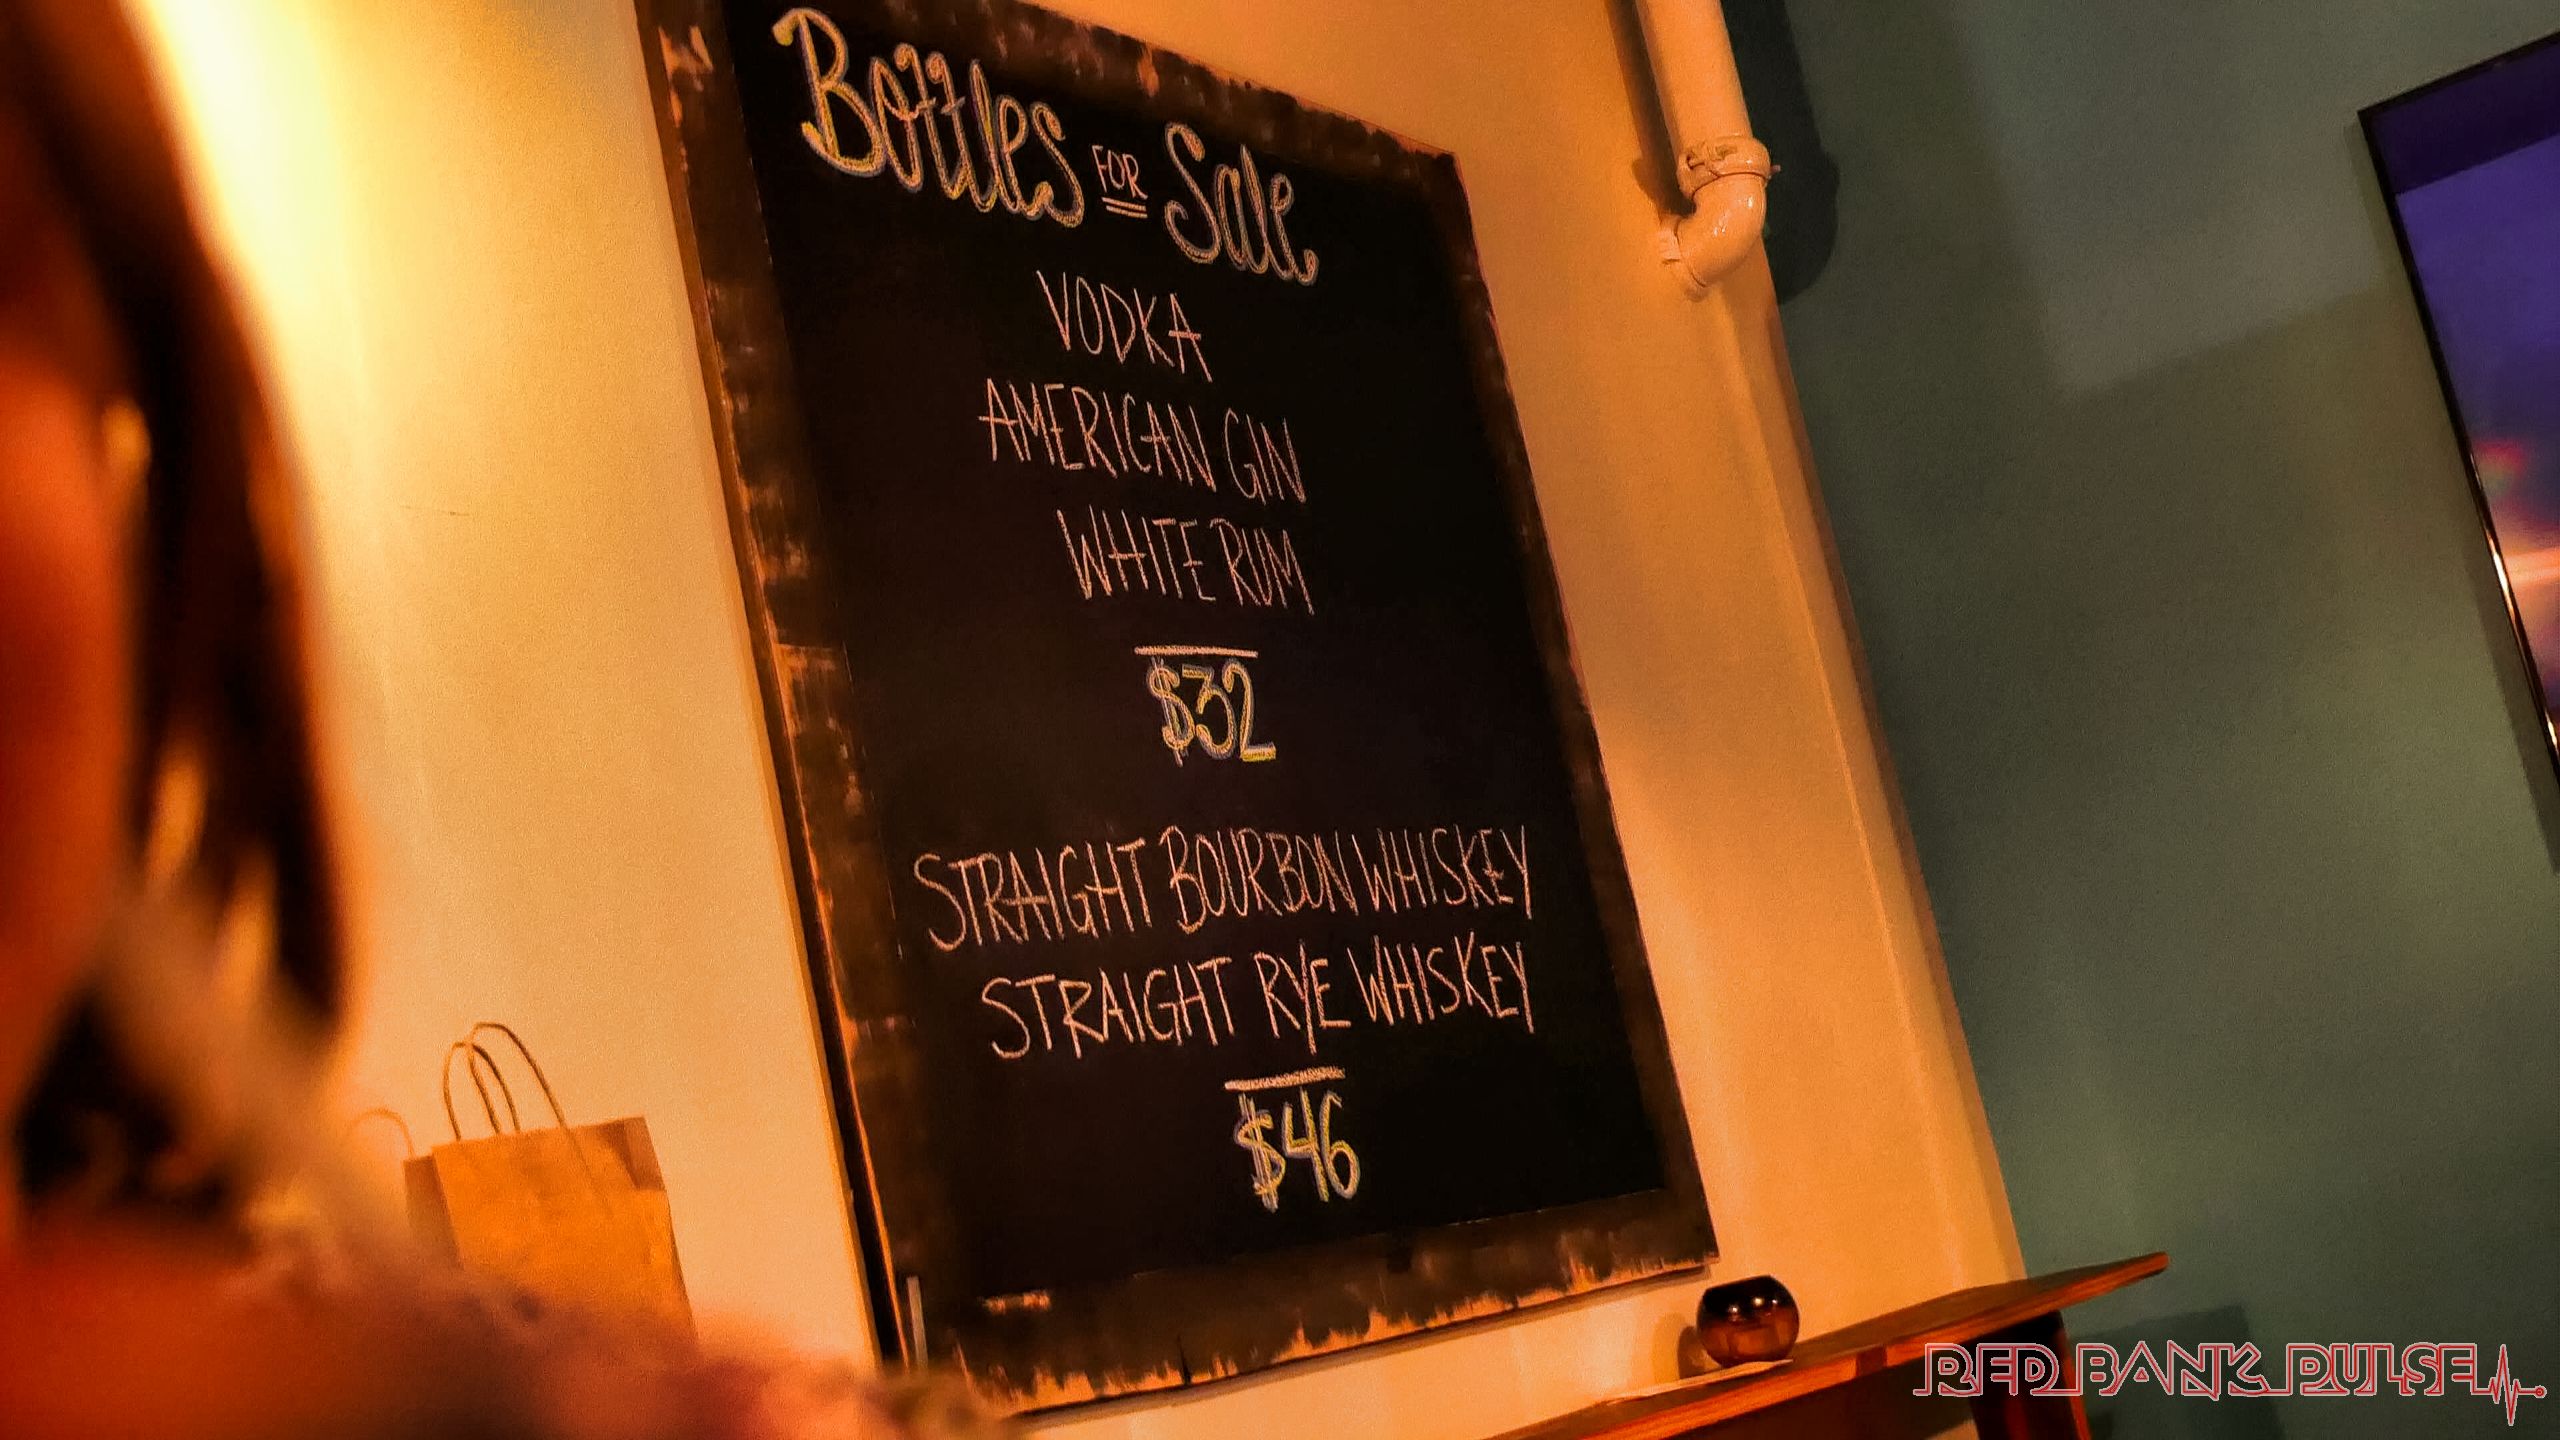 Bottles FOR Sale
VODKA
AMERICAN GIN
WHITE RUM
$32
STRAIGHT BOURBON WHISKEY
STRAIGHT RYE WHISKEY
$46
RED BANK PULSE